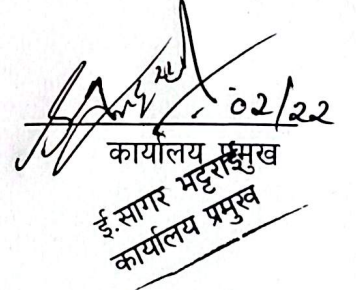 02/22
कार्यालय प्रमुख
ई.सागर भट्टराई
कार्यालय प्रमुख